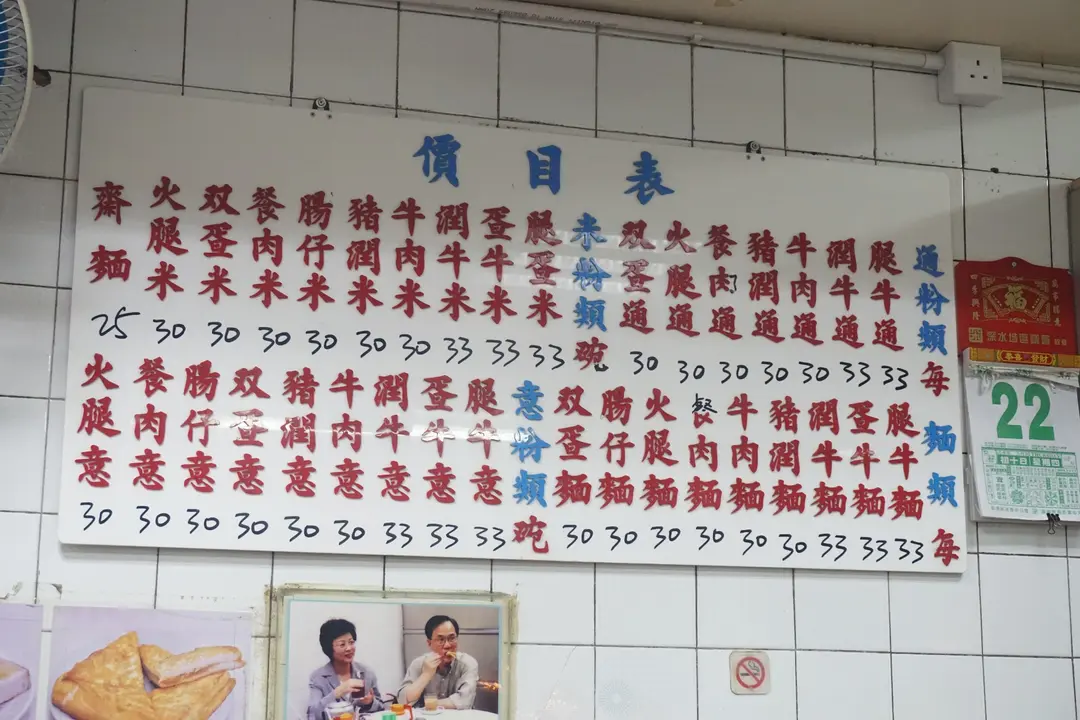 價目表
通粉類每
腿牛通 33
潤牛通 33
牛肉通 30
豬潤通 30
餐肉通 30
火腿通 30
双蛋通 30
米粉類碗
腿蛋米 33
蛋牛米 33
潤牛米 33
牛肉米 30
豬潤米 30
腸仔米 30
餐肉米 30
双蛋米 30
火腿米 30
齋麵 25
麵類每
腿牛麵 33
蛋牛麵 33
潤牛麵 33
豬潤麵 30
牛肉麵 30
餐肉麵 30
火腿麵 30
腸仔麵 30
双蛋麵 30
意粉類碗
腿牛意 33
蛋牛意 33
潤牛意 33
牛肉意 30
豬潤意 30
双蛋意 30
腸仔意 30
餐肉意 30
火腿意 30
福
22